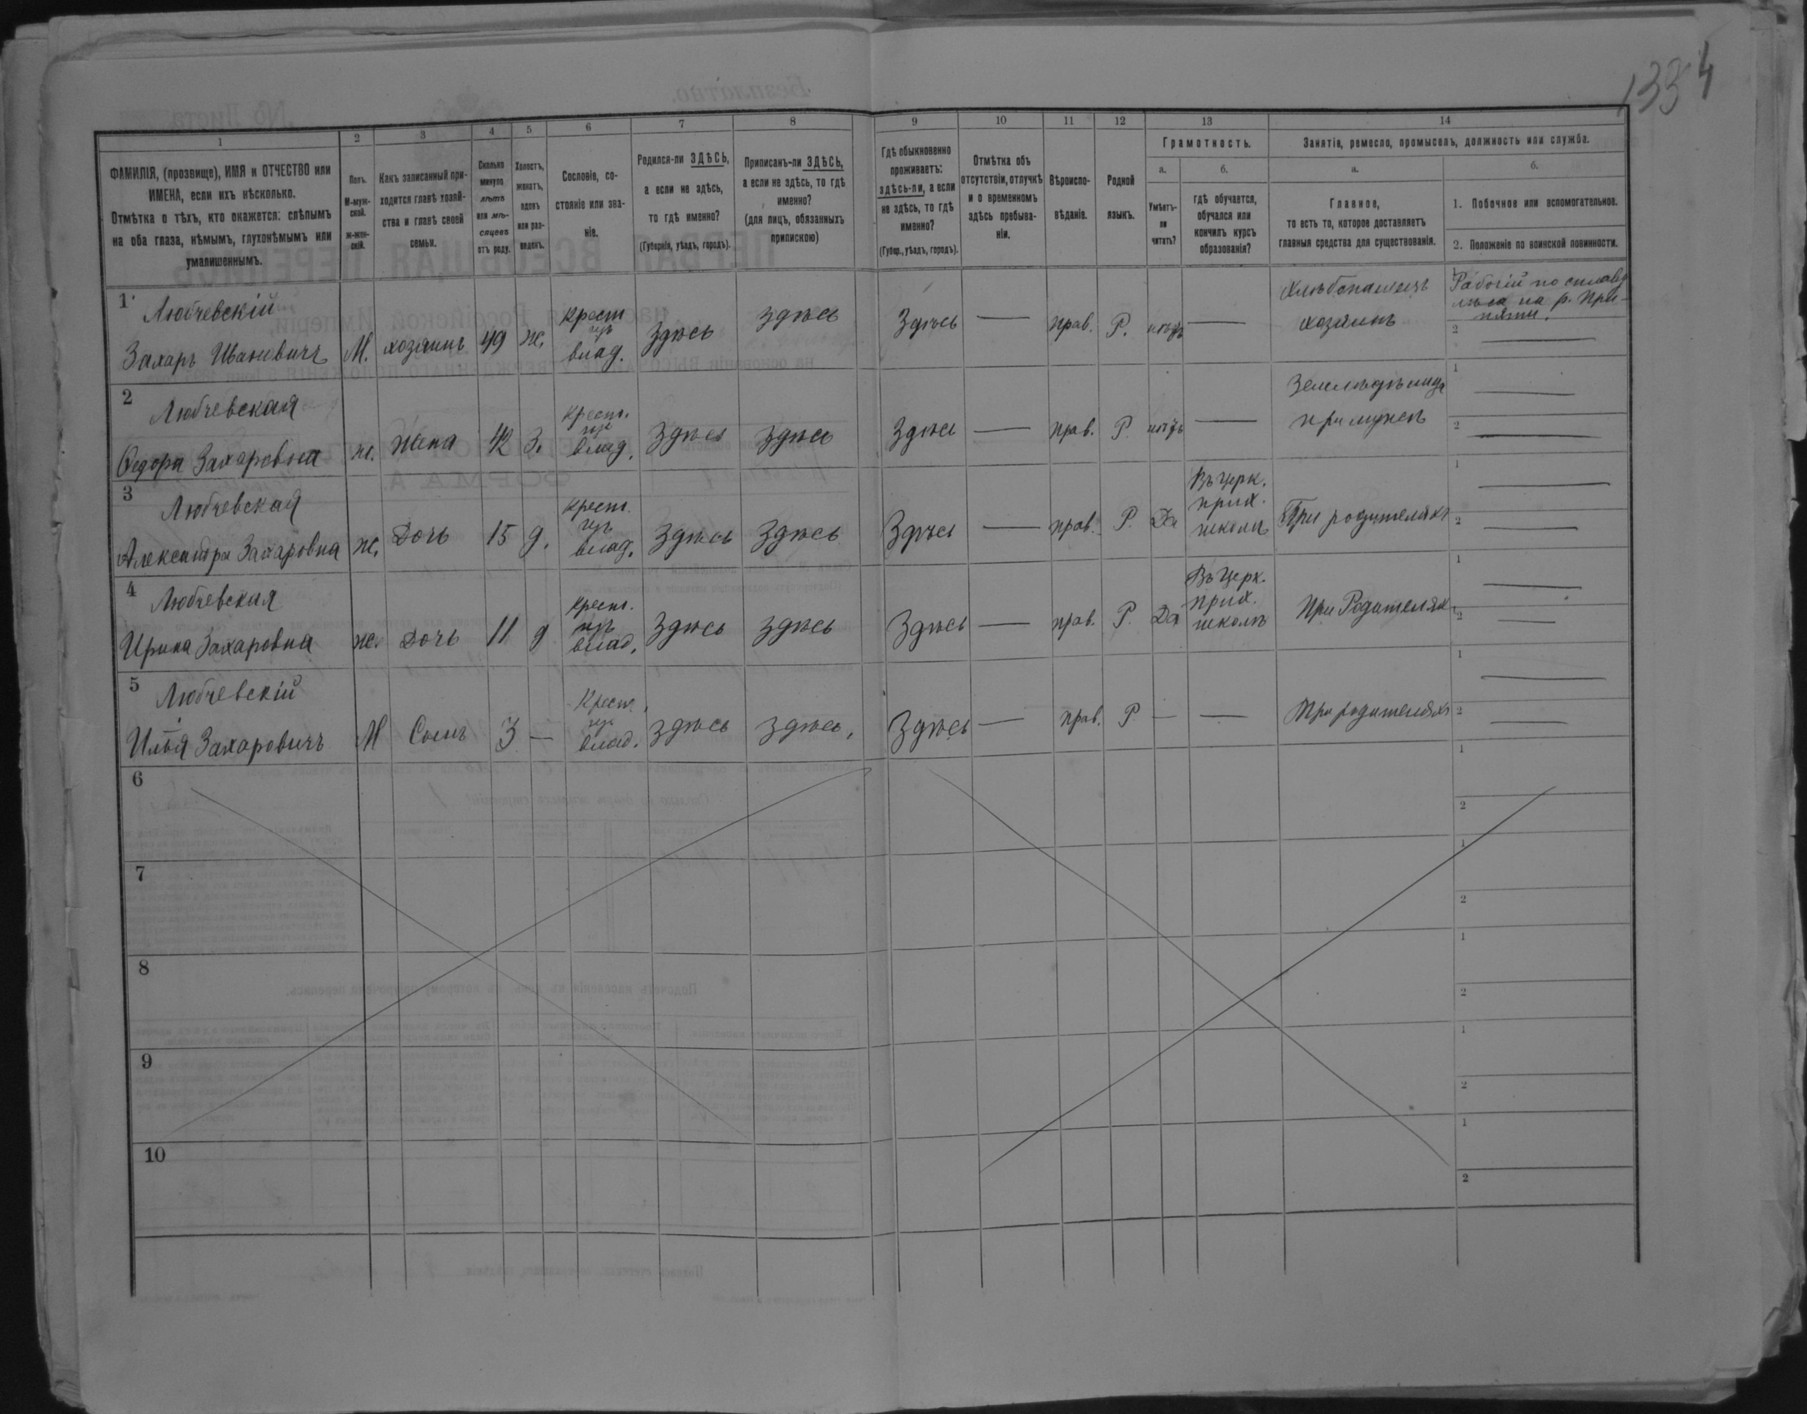 1334
1
2
3
4
5
6
7
8
9
10
11
12
13
14
ФАМИЛІЯ, (прозвище), ИМЯ и ОТЧЕСТВО или
ИМЕНА, если ихъ нѣсколько.
Отмѣтка о тѣхъ, кто окажется: слѣпымъ
на оба глаза, нѣмымъ, глухонѣмымъ или
умалишеннымъ.
Полъ.
М-муж-
ской.
Ж-жен-
скій.
Какъ записанный при-
ходится главѣ хозяй-
ства и главѣ своей
семьи.
Сколько
минуло
лѣтъ
или мѣ-
сяцевъ
отъ роду.
Холостъ,
женатъ,
вдовъ
или раз-
веденъ.
Сословіе, со-
стояніе или зва-
ніе.
Родился-ли ЗДѢСЬ,
а если не здѣсь,
то гдѣ именно?
(Губернія, уѣздъ, городъ).
Приписанъ-ли ЗДѢСЬ,
а если не здѣсь, то гдѣ
именно?
(для лицъ, обязанныхъ
припискою)
Гдѣ обыкновенно
проживаетъ:
здѣсь-ли, а если
не здѣсь, то гдѣ
именно?
(Губер., уѣздъ, городъ).
Отмѣтка объ
отсутствіи, отлучкѣ
и о временномъ
здѣсь пребыва-
ніи.
Вѣроиспо-
вѣданіе.
Родной
языкъ.
Грамотность.
а.
Умѣетъ-
ли
читать?
б.
гдѣ обучается,
обучался или
кончилъ курсъ
образованія?
Занятіе, ремесло, промыселъ, должность или служба.
а.
Главное,
то есть то, которое доставляетъ
главныя средства для существованія.
б.
1. Побочное или вспомогательное.
2. Положеніе по воинской повинности.
1
Любчевскій
Захаръ Ивановичъ
М.
хозяинъ
49
ж.
крест
изъ
влад.
Здѣсь
здѣсь
Здѣсь
—
прав.
Р.
нѣтъ
—
Хлѣбопашецъ
хозяинъ
1
Рабочій по сплаву
лѣса на р. При-
пяти.
2
—
2
Любчевская
Ѳедора Захаровна
ж.
жена
42
З.
крест.
изъ
влад.
Здѣсь
Здѣсь
Здѣсь
—
прав.
Р.
нѣтъ
—
Земледѣлица
при мужѣ
1
—
2
—
3
Любчевская
Александра Захаровна
ж.
Дочь
15
д.
крест.
изъ
влад.
Здѣсь
Здѣсь
Здѣсь
—
прав.
Р.
Да
Въ церк.
прих.
школѣ
При родителяхъ
1
—
2
—
4
Любчевская
Ирина Захаровна
ж.
Дочь
11
д
крест.
изъ
влад.
Здѣсь
здѣсь
Здѣсь
—
прав.
Р.
Да
Въ церк.
прих.
школѣ
При Родителяхъ
1
—
2
—
5
Любчевскій
Илья Захаровичъ
М
Сынъ
3
—
Крест.
изъ
влад.
здѣсь
здѣсь,
Здѣсь
—
прав.
Р
—
—
При родителяхъ
1
—
2
—
6
1
2
7
1
2
8
1
2
9
1
2
10
1
2